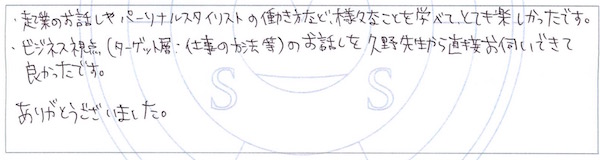 ・起業のお話しやパーソナルスタイリストの働き方など、様々なことを学べて、とても楽しかったです。
・ビジネス視点(ターゲット層・仕事の方法等)のお話しを久野先生から直接お伺いできて
良かったです。
ありがとうございました。
S S